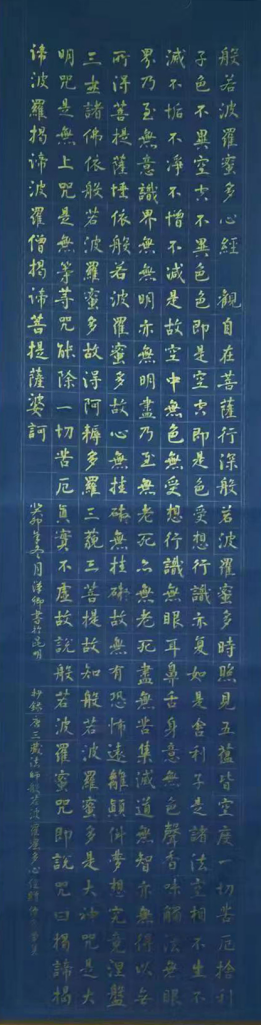 般若波羅蜜多心經 觀自在菩薩行深般若波羅蜜多時照見五蘊皆空度一切苦厄捨利
子色不異空空不異色色即是空空即是色受想行識亦复如是舍利子是諸法空相不生不
滅不垢不淨不憎不減是故空中無色無受想行識無眼耳鼻舌身意無色聲香味觸法無眼
界乃至無意識界無無明亦無無明盡乃至無老死亦無老死盡無苦集滅道無智亦無得以無
所得菩提薩埵依般若波羅蜜多故心無挂礙無挂礙故無有恐怖遠離顛倒夢想究竟涅盤
三世諸佛依般若波羅蜜多故得阿耨多羅三藐三菩提故知般若波羅蜜多是大神咒是大
明咒是無上咒是無等等咒能除一切苦厄真實不虛故說般若波羅蜜咒即說咒曰揭諦揭
諦波羅揭諦波羅僧揭諦菩提薩婆訶
癸卯年冬月漢卿書於昆明
抄錄唐三藏法師般若波羅蜜多心經